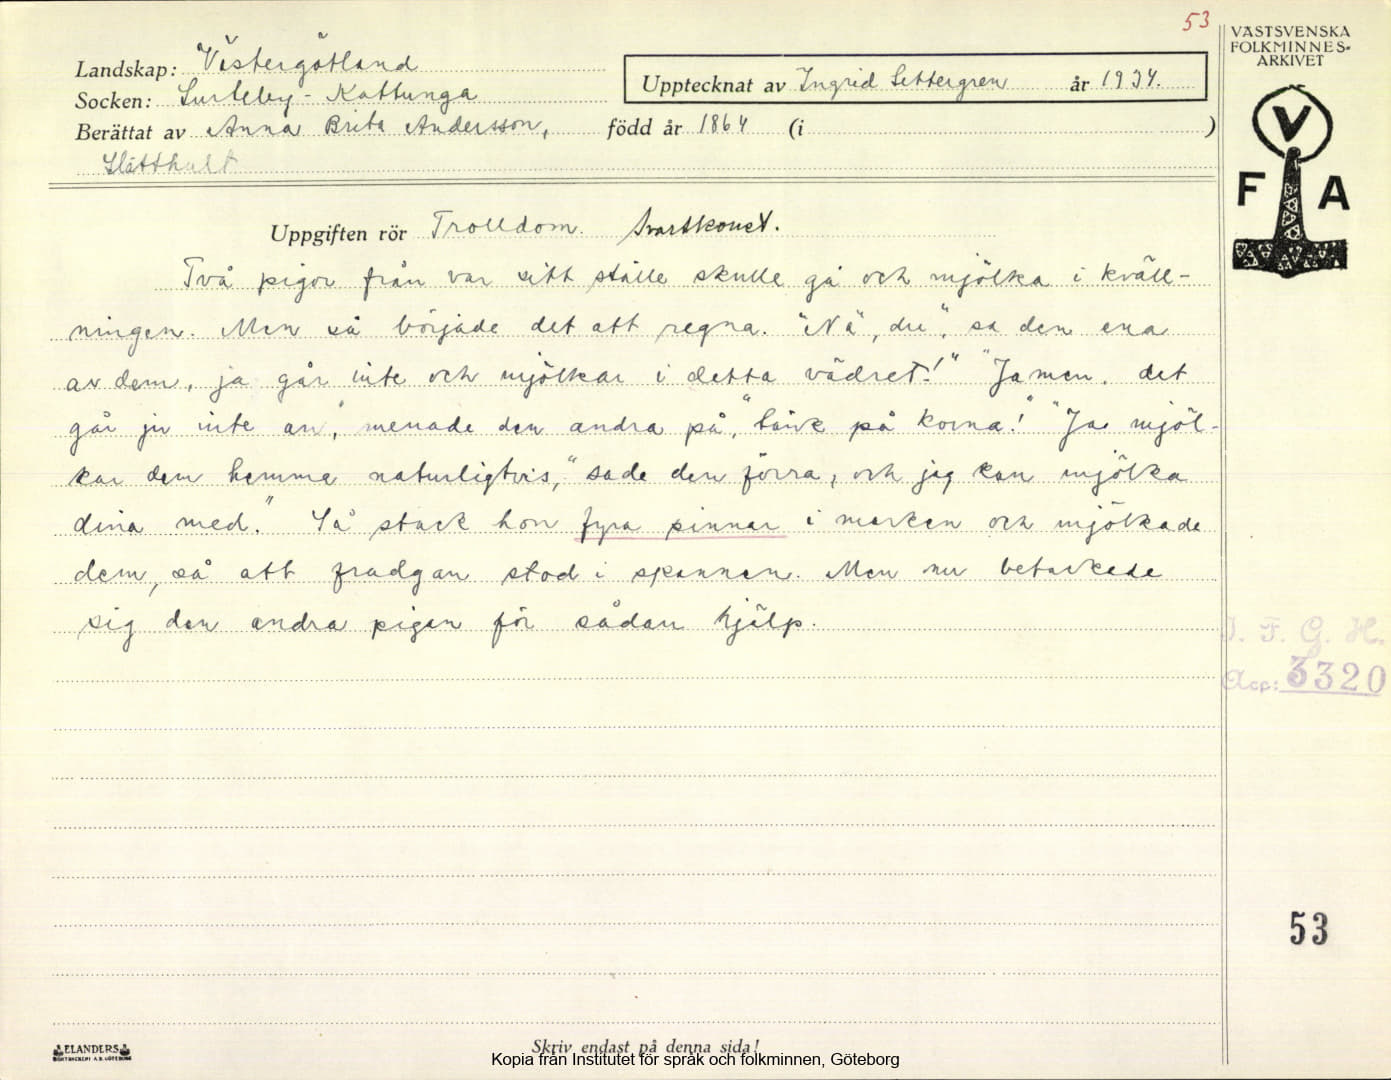 53
Landskap: Västergötland
Socken: Surteby-Kattunga
Upptecknat av Ingrid Settergren år 1934.
Berättat av Anna Brita Andersson, född år 1864 (i )
Slätthult
VÄSTSVENSKA
FOLKMINNES-
ARKIVET
V
F A
Uppgiften rör Trolldom. Svartkonst.
Två pigor från var sitt ställe skulle gå och mjölka i kväll-
ningen. Men så började det att regna. "Nä, du", sa den ena
av dem, ja går inte och mjölkar i detta vädret!" "Jamen, det
går ju inte an," menade den andra på, "tänk på korna!" "Ja mjöl-
kar dem hemma naturligtvis," sade den förra, och jag kan mjölka
dina med." Så stack hon fyra pinnar i marken och mjölkade
dem, så att fradgan stod i spannen. Men nu betackade
sig den andra pigan för sådan hjälp.
I. F. G. H.
Acc: 3320
53
ELANDERS
BOKTRYCKERI A.B. GÖTEBORG
Skriv endast på denna sida!
Kopia från Institutet för språk och folkminnen, Göteborg